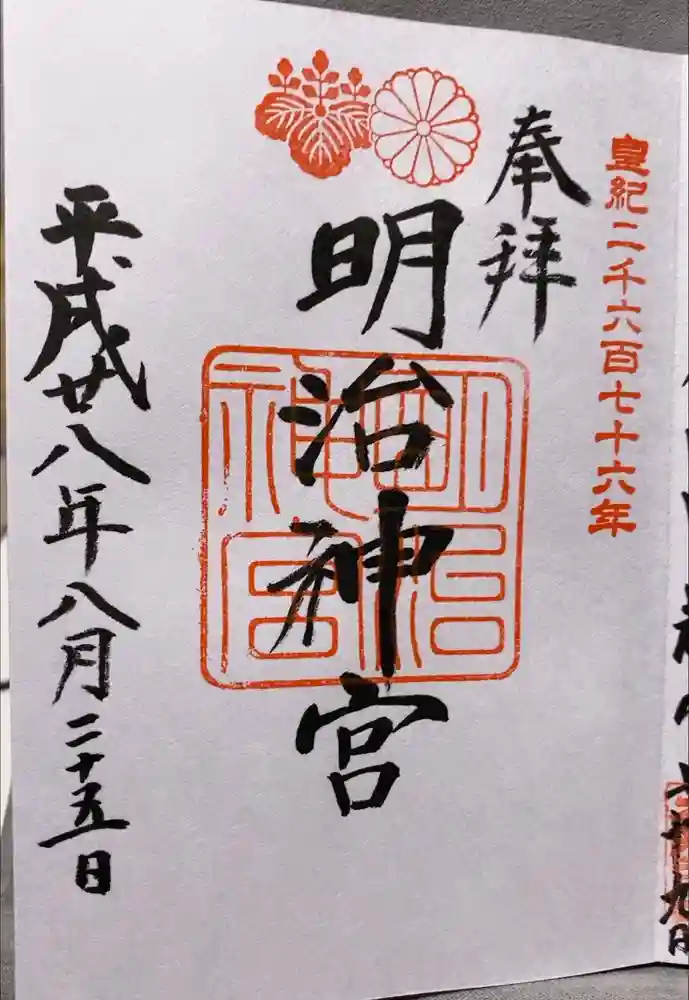 皇紀二千六百七十六年
奉拝
明治神宮
明治神宮
平成廿八年八月二十五日
九日